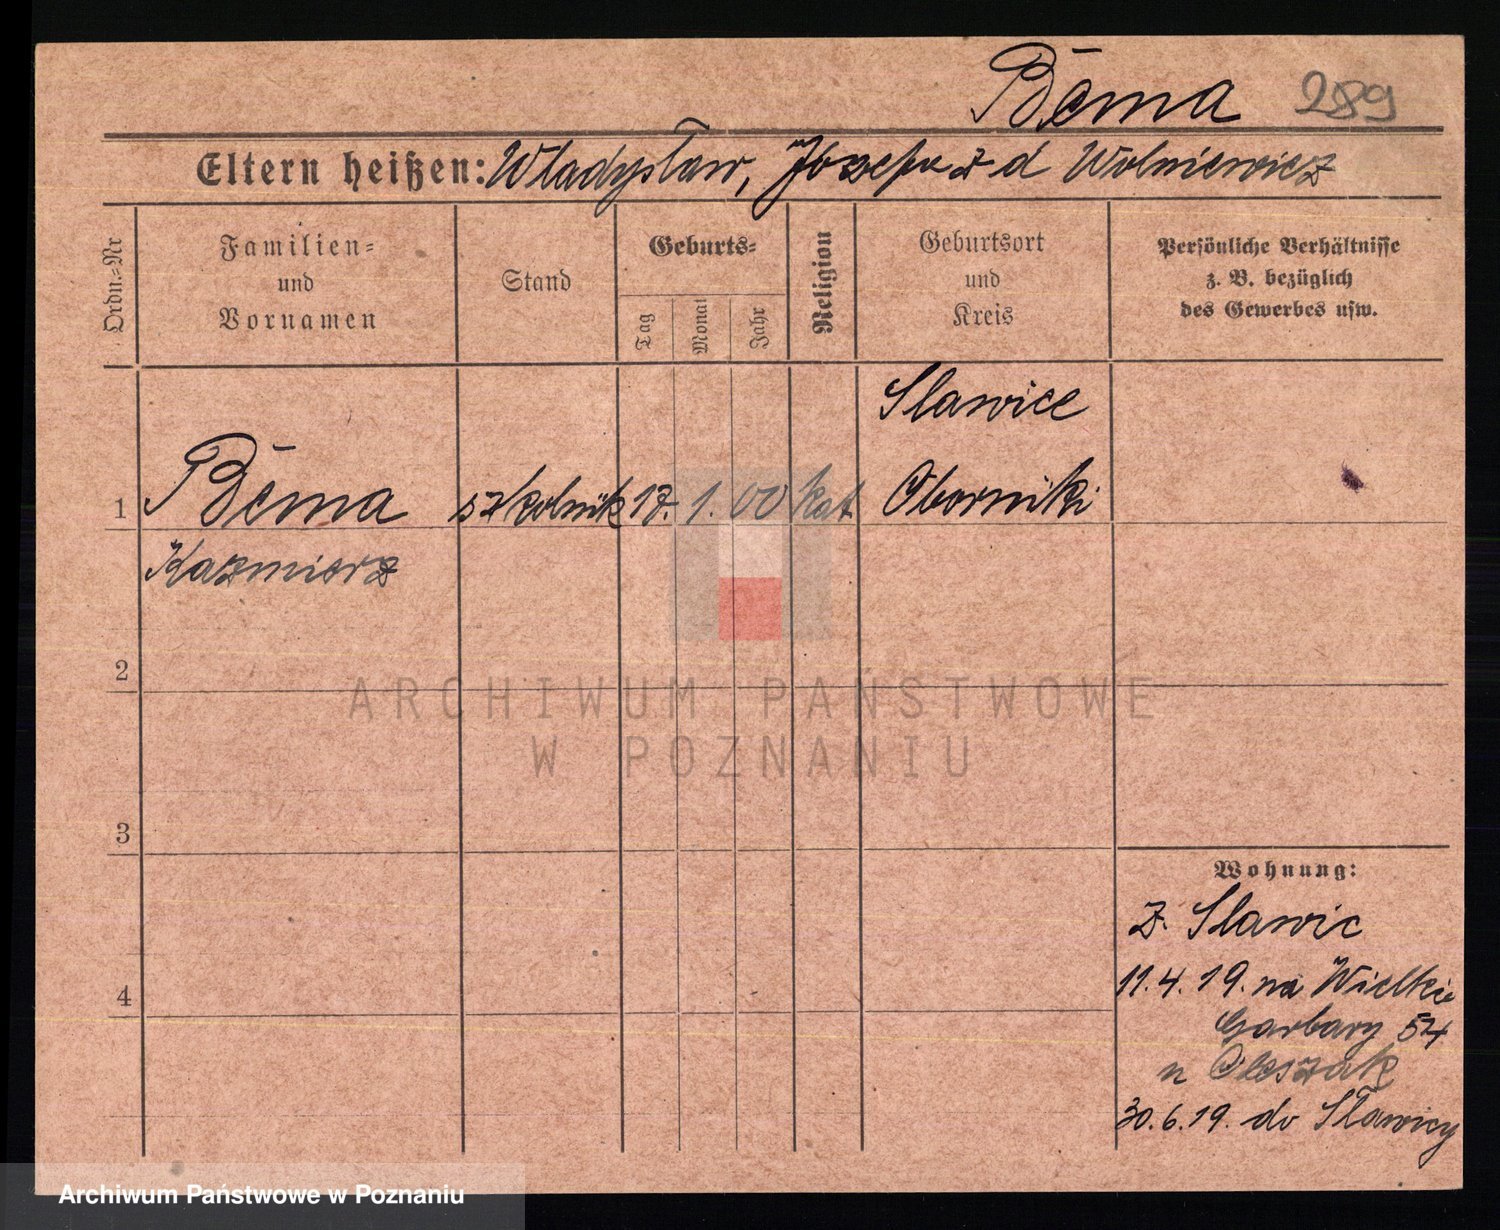 Bēma 289
Eltern heißen: Władysław, Józefa z d Wolniewicz
Ordn.=Nr
Familien=
und
Vornamen
Stand
Geburts=
Tag
Monat
Jahr
Religion
Geburtsort
und
Kreis
Persönliche Verhältnisse
z. B. bezüglich
des Gewerbes usw.
Slawice
1 Bēma szkolnik 17. 1. 00 kat Oborniki
Kazmierz
2
3
4
Wohnung:
z. Slawic
11.4.19. na Wielkie
Garbary 54
u Oleszak
30.6.19. do Sławicy
ARCHIWUM PAŃSTWOWE
W POZNANIU
Archiwum Państwowe w Poznaniu